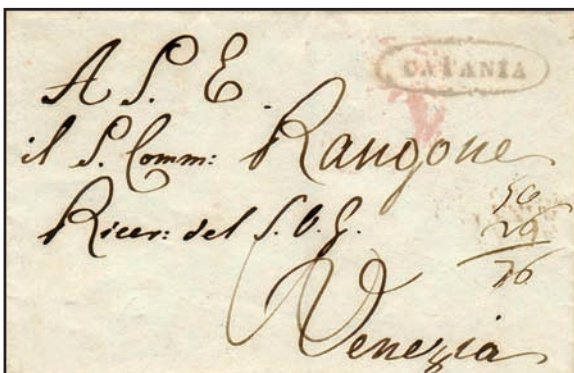 CATANIA
A S. E.
il S. Comm: Rangone
Ricev: del S. O. G.
Venezia